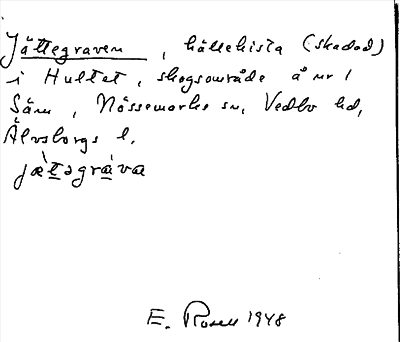 Jättegraven, hällekista (skadad)
i Hultet, skogsområde å nr 1
Säm, Nössemarks sn, Vedbo hd,
Älvsborgs l.
jæ̀təgrávæ
E. Rosell 1948